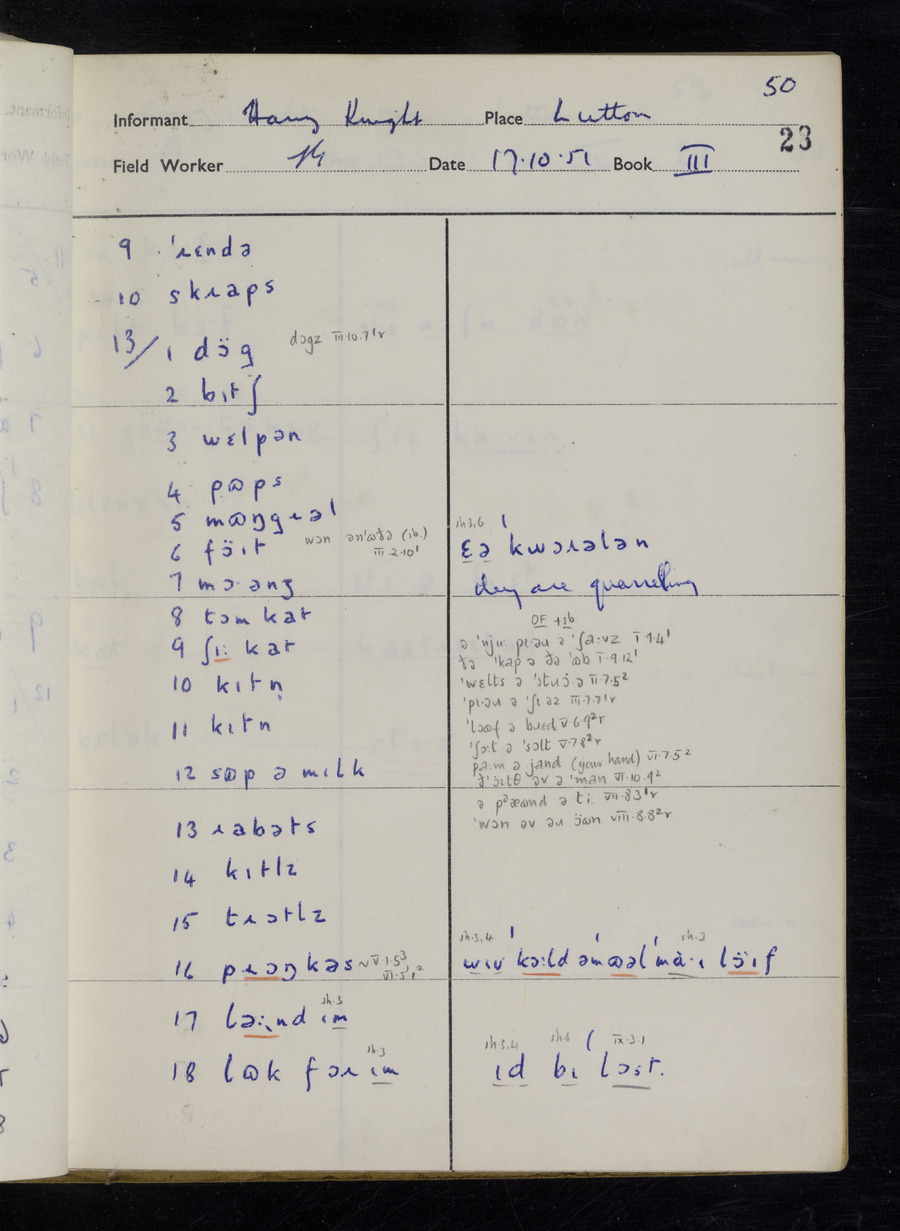 50
Informant Harry Knight Place Lutton
23
Field Worker Date 17.10.51 Book III
9 ˈɹɛndə
10 skɹaps
13/1 dɔ̈g dɔgz III.10.7¹r
2 bɪtʃ
3 wɛlpən
4 pɷps
5 mɷŋgɹəl
6 fɔ̈ɪt wɔn ənˈɷðə (ib.)
III.2.10¹
7 mɔ·ənz
8 tɔm kat
9 ʃɪ: kat
10 kɪtn̩
11 kɪtn
12 sɷp ə mɪlk
13 ɹabəts
14 kɪtlz
15 tɹɔtlz
16 pɹɔŋkəs ~ V.1.5³
VI.5.1²
17 lə:ɪnd ɪm sh.3
18 lɷk fəɹ ɪm sh.3
sh.3,6
ɛə kwɔɹələn
they are quarrelling
OF + sb
ə ˈnju: pɪəɹ ə ˈʃa:vz I.7.4¹
ðə ˈkap ə ðə ˈɷb I.9.12¹
ˈwɛlts ə ˈstuɔ·ə II.7.5²
ˈpɪəɹ ə ˈʃɪəz III.7.7¹r
ˈləɷf ə bɹɛd V.6.9²r
ˈʃɔ:t ə ˈsɔlt V.7.8²r
pa:m ə jand (your hand) VI.7.5²
əv ə ˈman VI.10.9²
ə pᵊæɷnd ə ti: VII.8.3¹r
ˈwɔn əv əɹ ɔ̈ɷn VIII.8.8²r
sh.3,4 sh.3
wɪv kə:ld əmɷəl ma·ɪ lɔ̈ɪf
sh.3,4 sh.6 IX.3.1
ɪd bɪ lɔst.